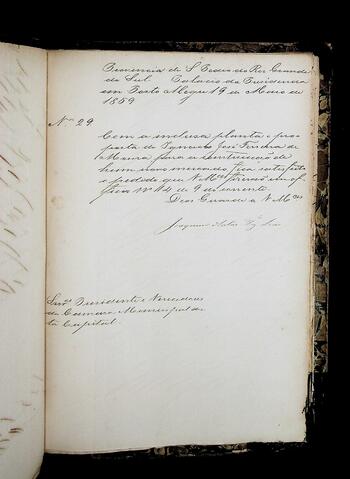 Provincia de S. Pedro do Rio Grande
do Sul. Palacio da Presidencia
em Porto Alegre 19 de Maio de
1859
Nº 29.
Com a inclusa planta e pro
posta de José Ferreira de
Moura para a construcção de
hum novo mercado fica satisfeito
o pedido que V. Mces fizerão em of
ficio Nº 42 de 9 do corrente.
Deos Guarde a V. Mces
Joaquim
Snrs Presidente e Vereadores
da Camara Municipal des
ta Capital.